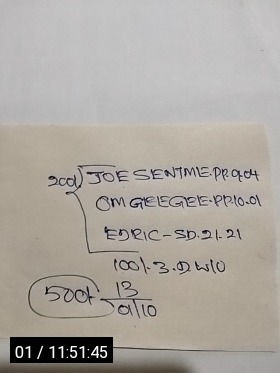 200/ JOE SENTMLE.PR.9.04
OMGEEGEE.PR.10.01
EDRIC-SD.21.21
100/.3.D W/O
500/- 13
01/10
01 / 11:51:45